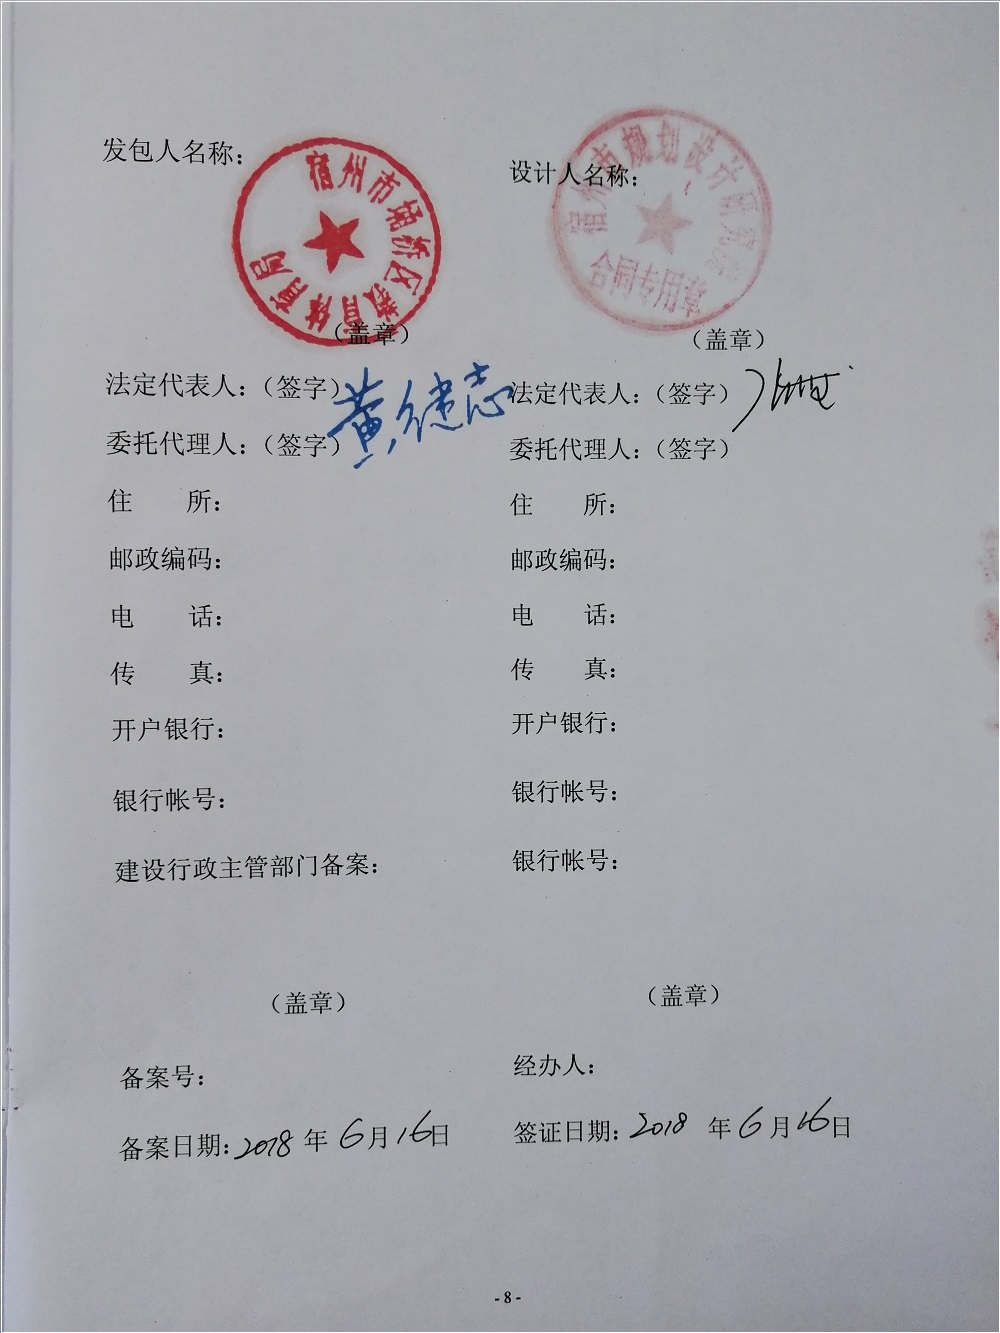 发包人名称：
宿州市埇桥区教育体育局
（盖章）
法定代表人：（签字）黄继志
委托代理人：（签字）
住　　所：
邮政编码：
电　　话：
传　　真：
开户银行：
银行帐号：
建设行政主管部门备案：
（盖章）
备案号：
备案日期：2018 年 6 月 16 日
设计人名称：
宿州市规划设计研究院
合同专用章
（盖章）
法定代表人：（签字）
委托代理人：（签字）
住　　所：
邮政编码：
电　　话：
传　　真：
开户银行：
银行帐号：
银行帐号：
（盖章）
经办人：
签证日期：2018 年 6 月 16 日
- 8 -